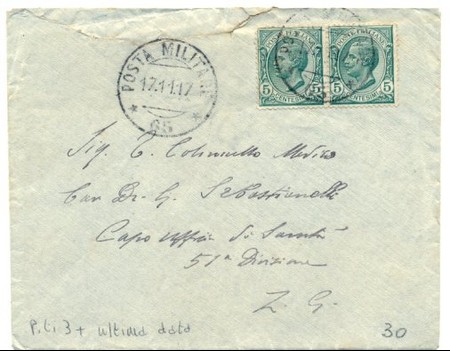 POSTA MILITARE
17.11.17
65
POSTE ITALIANE POSTE ITALIANE
5 CENTESIMI 5 5 CENTESIMI 5
Sig. T. Colonnello Medico
Cav Dr. G. Sebastianelli
Capo Uffici di Sanità
51ª Divisione
Z. G.
P.ti 3 + ultima data
30